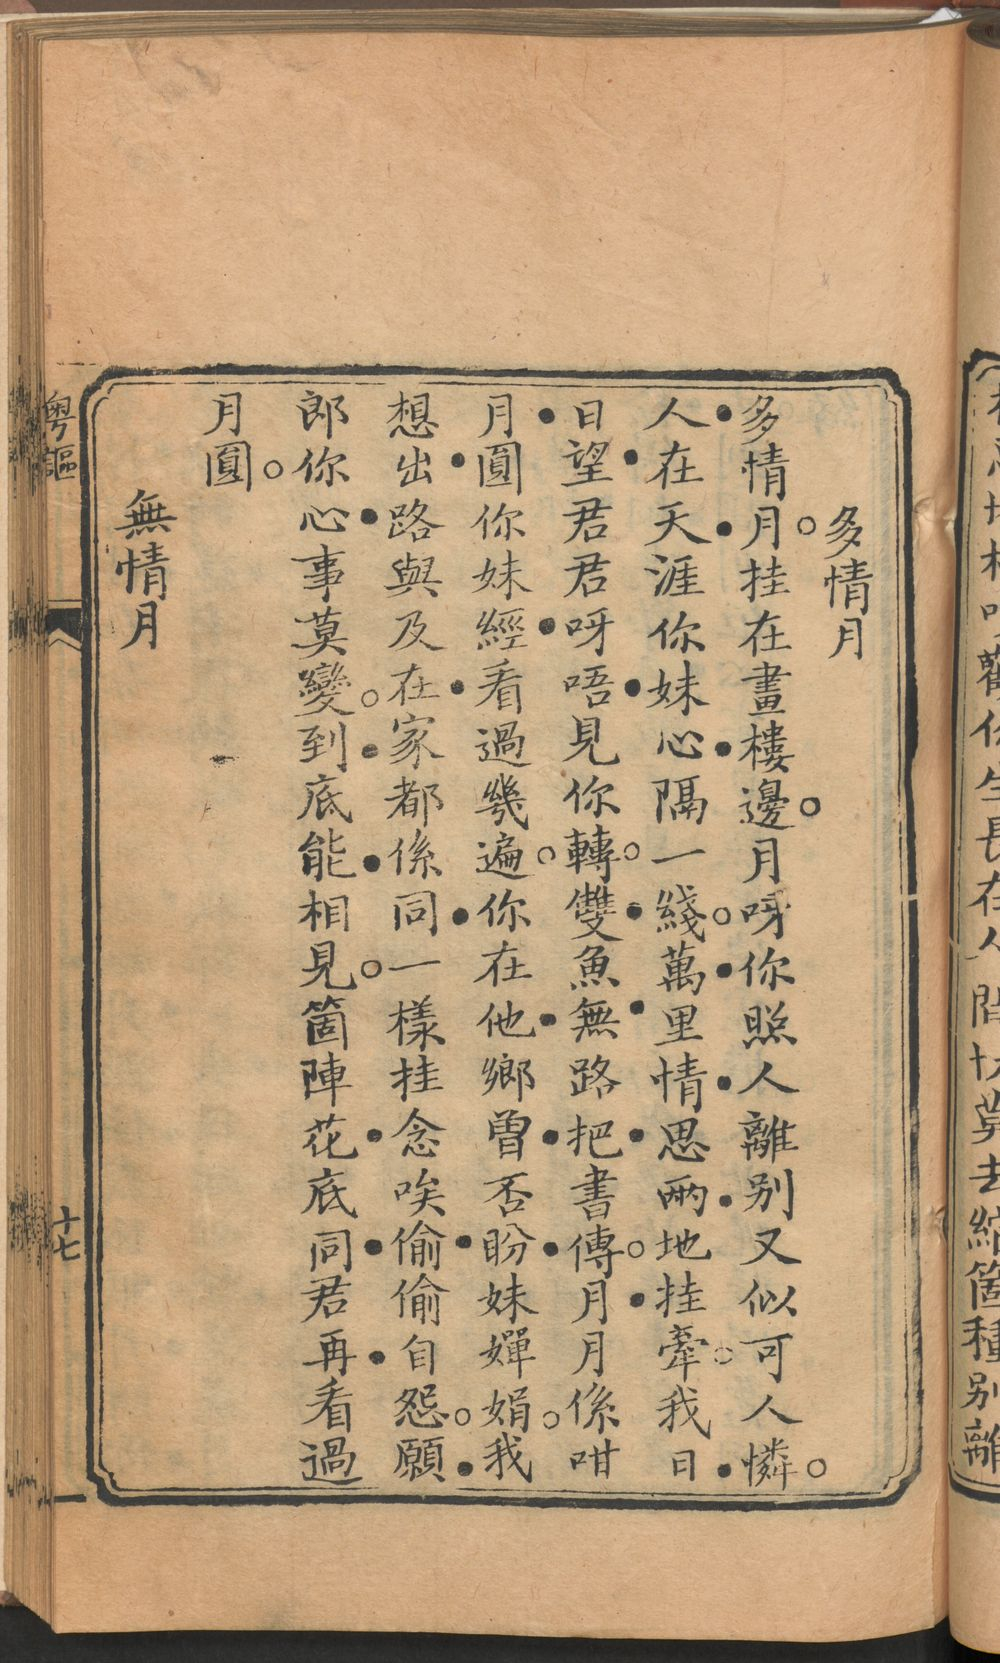 多情月
多情月挂在畫樓邊月呀你照人離别又似可人憐
人在天涯你妹心隔一綫萬里情思兩地挂牽我日
日望君君呀唔見你轉雙魚無路把書傳月月係咁
月圓你妹經看過幾遍你在他鄉曾否盼妹嬋娟我
想出路與及在家都係同一樣挂念唉偷偷自怨願
郎你心事莫變到底能相見箇陣花底同君再看過
月圓
無情月
粵謳
十七